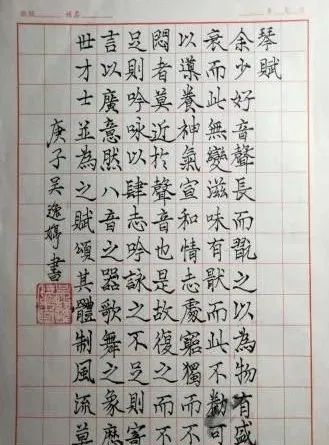 琴賦
余少好音聲長而翫之以為物有盛
衰而此無變滋味有猒而此不勌可
以導養神氣宣和情志處窮獨而不
悶者莫近於音聲也是故復之而不
足則吟咏以肆志吟詠之不足則寄
言以廣意然八音之器歌舞之象歷
世才士並為之賦頌其體制風流莫
庚子吴逸婷書